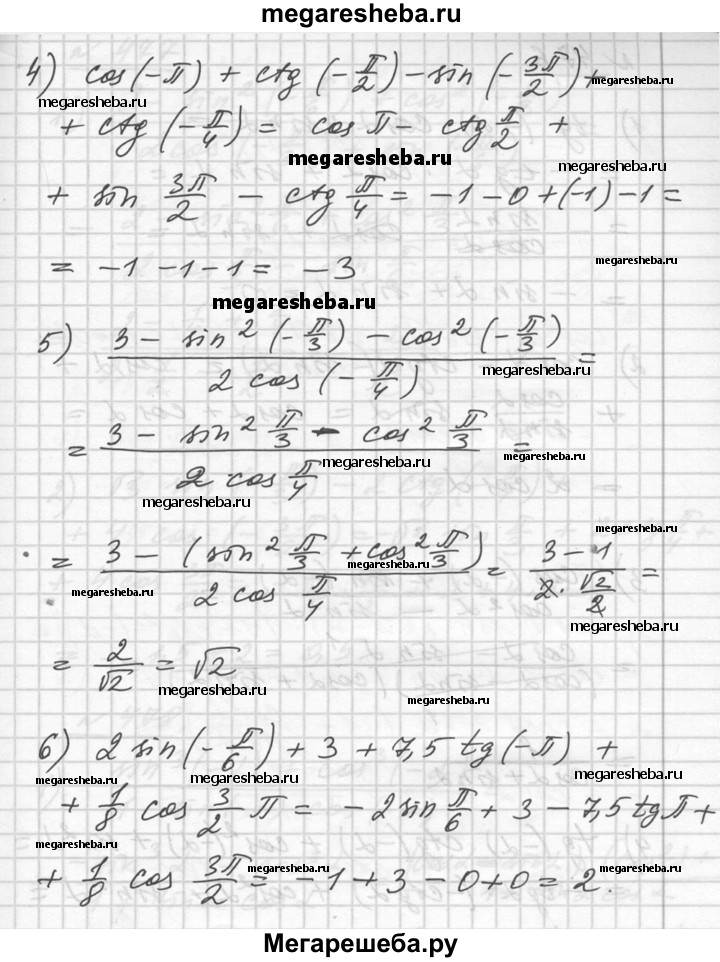 megaresheba.ru
4) cos(-π) + ctg(-π/2) - sin(-3π/2) +
megaresheba.ru
megaresheba.ru
+ ctg(-π/4) = cos π - ctg π/2 +
megaresheba.ru
megaresheba.ru
+ sin 3π/2 - ctg π/4 = -1 - 0 + (-1) - 1 =
megaresheba.ru
= -1 - 1 - 1 = -3
megaresheba.ru
5) (3 - sin²(-π/3) - cos²(-π/3)) / (2 cos(-π/4)) =
megaresheba.ru
= (3 - sin² π/3 - cos² π/3) / (2 cos π/4) =
megaresheba.ru
megaresheba.ru
megaresheba.ru
= (3 - (sin² π/3 + cos² π/3)) / (2 cos π/4) = (3 - 1) / (2 · √2/2) =
megaresheba.ru
megaresheba.ru
megaresheba.ru
= 2/√2 = √2
megaresheba.ru
megaresheba.ru
6) 2 sin(-π/6) + 3 + 7,5 tg(-π) +
megaresheba.ru
megaresheba.ru
megaresheba.ru
+ 1/8 cos 3/2 π = -2 sin π/6 + 3 - 7,5 tg π +
megaresheba.ru
megaresheba.ru
+ 1/8 cos 3π/2 = -1 + 3 - 0 + 0 = 2.
megaresheba.ru
megaresheba.ru
Мегарешеба.ру